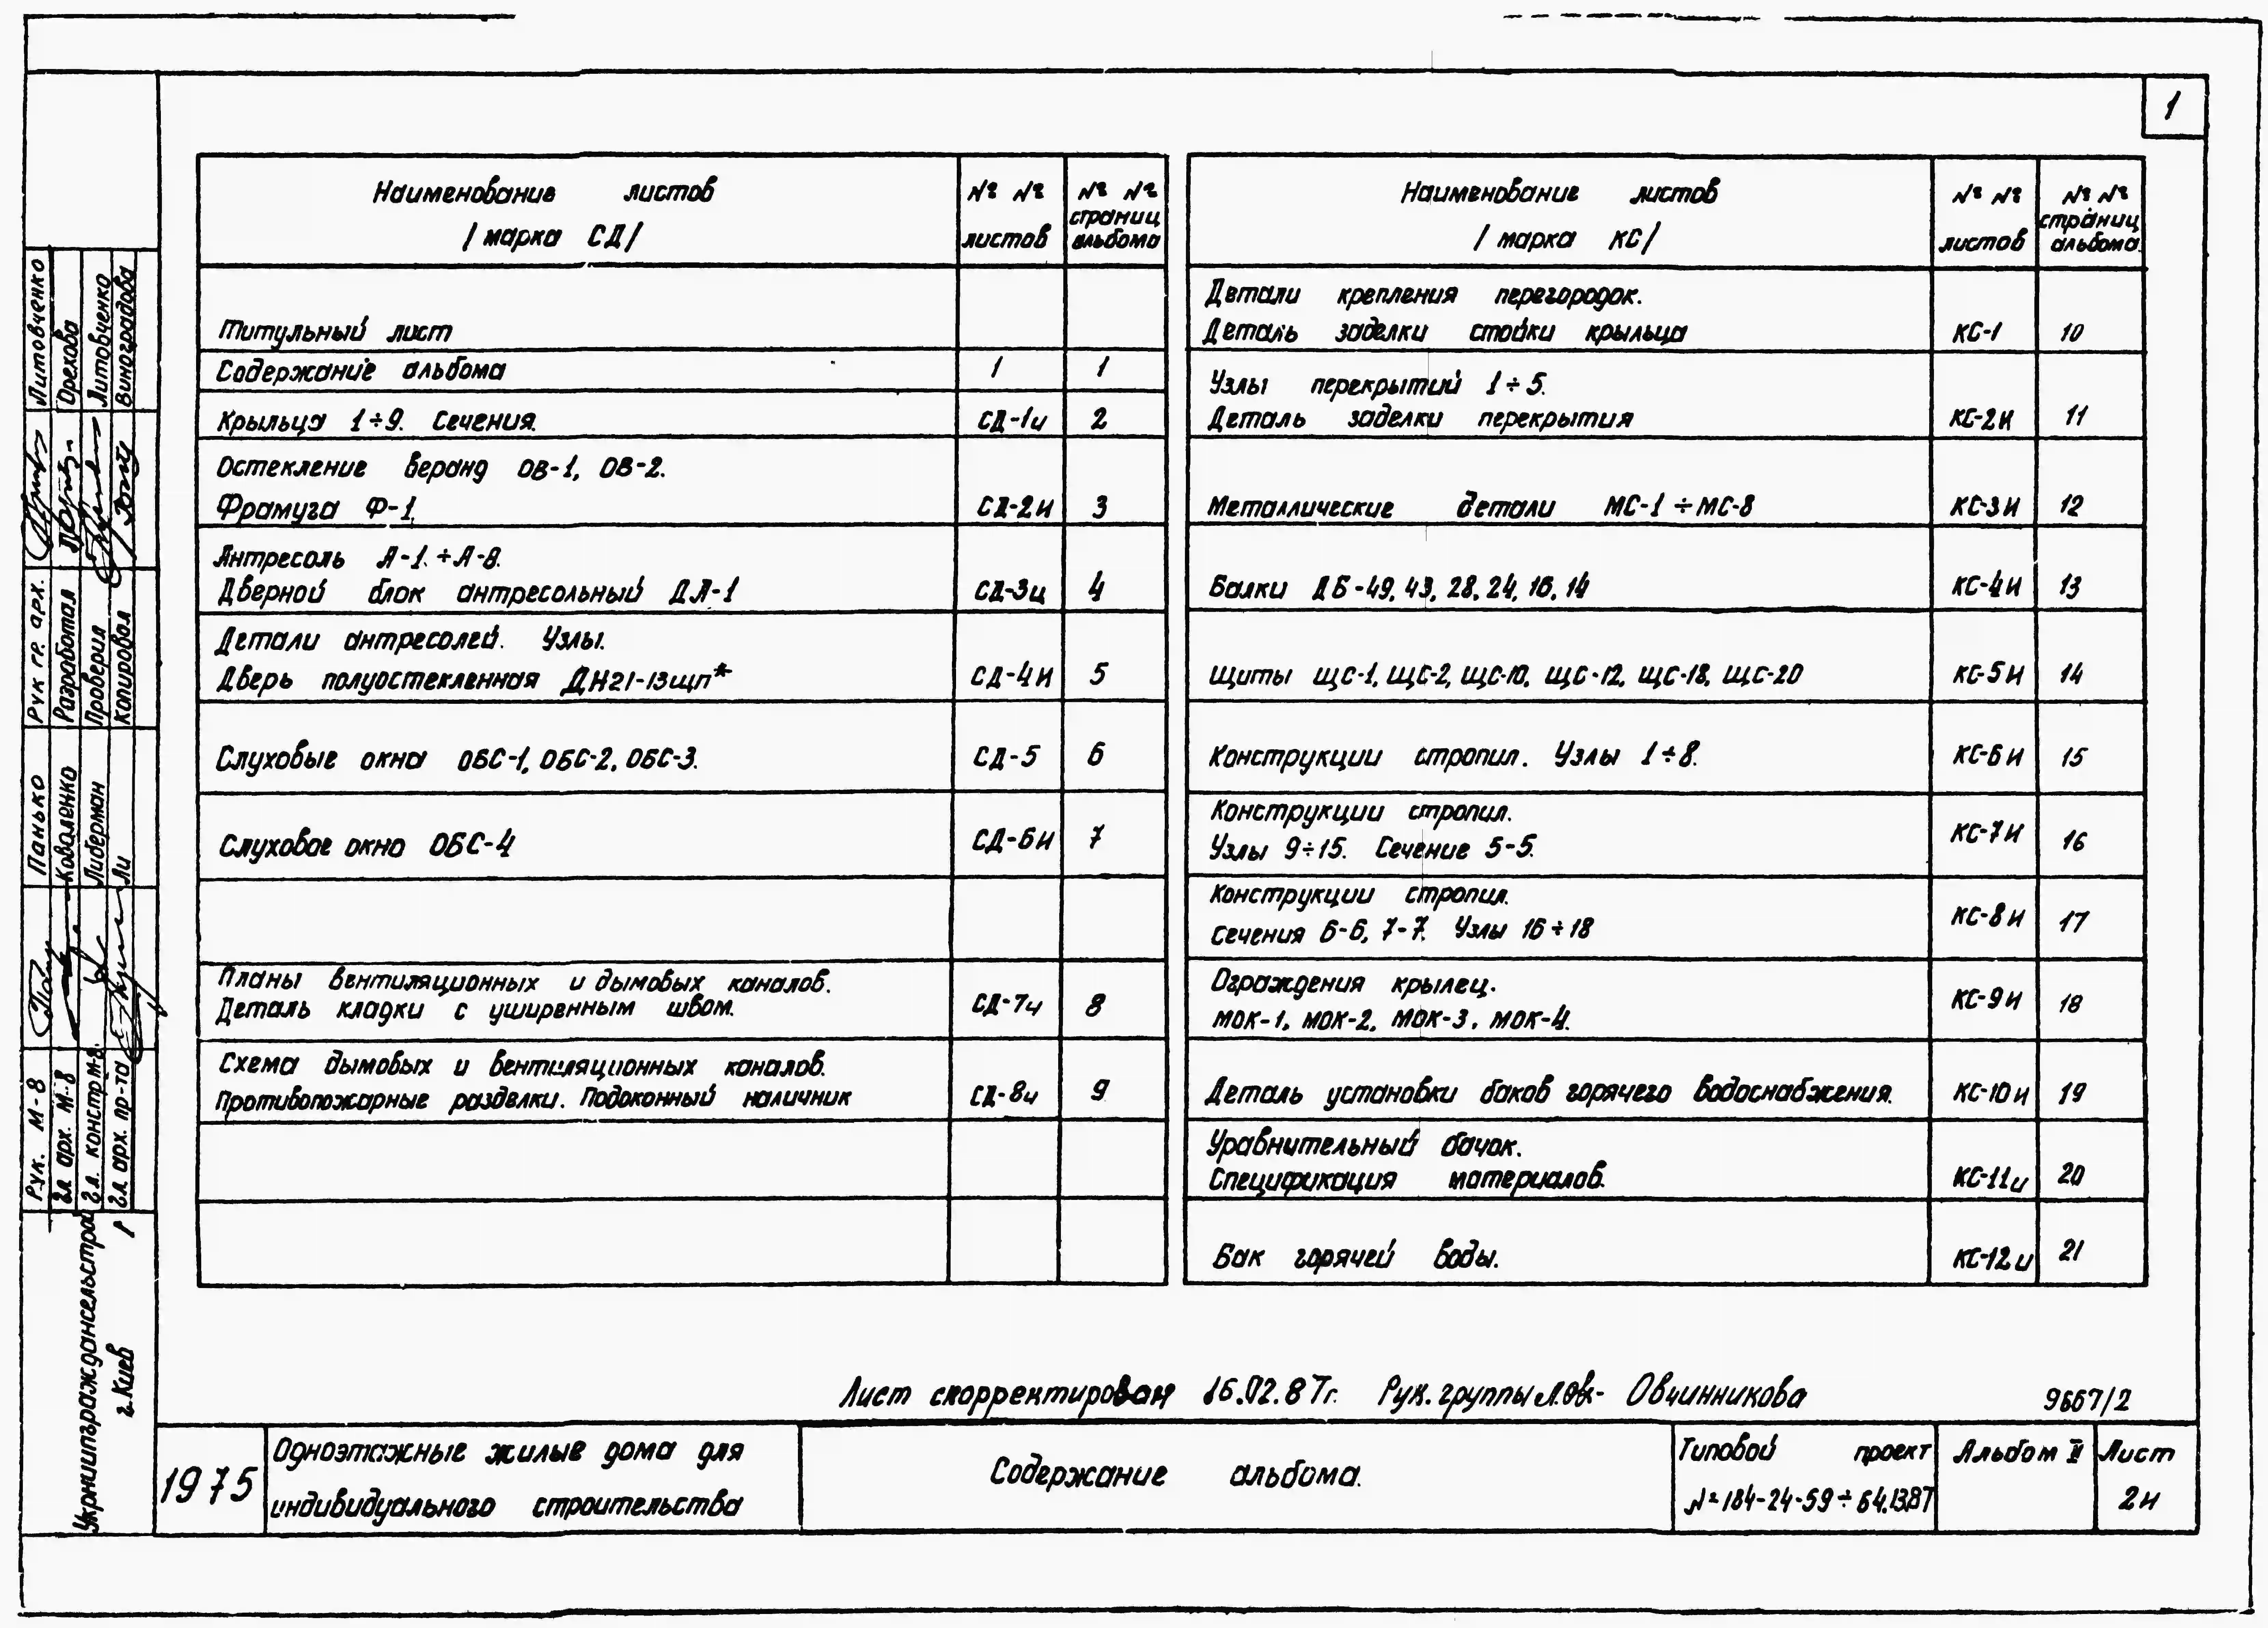 1
Наименование листов
/ марка СД/
№ № листов
№ № страниц альбома
Титульный лист
Содержание альбома 1 1
Крыльца 1÷9. Сечения. СД-1и 2
Остекление веранд ОВ-1, ОВ-2.
Фрамуга Ф-1. СД-2И 3
Антресоль А-1.÷А-8.
Дверной блок антресольный ДА-1 СД-3и 4
Детали антресолей. Узлы.
Дверь полуостекленная ДН21-13щп* СД-4И 5
Слуховые окна ОБС-1, ОБС-2, ОБС-3. СД-5 6
Слуховое окно ОБС-4 СД-6И 7
Планы вентиляционных и дымовых каналов.
Деталь кладки с уширенным швом. СД-7и 8
Схема дымовых и вентиляционных каналов.
Противопожарные разделки. Подоконный наличник СД-8и 9
Наименование листов
/ марка КС/
№ № листов
№ № страниц альбома
Детали крепления перегородок.
Деталь заделки стойки крыльца КС-1 10
Узлы перекрытий 1÷5.
Деталь заделки перекрытия КС-2И 11
Металлические детали МС-1÷МС-8 КС-3И 12
Балки ДБ-49, 43, 28, 24, 16, 14 КС-4И 13
Щиты ЩС-1, ЩС-2, ЩС-10, ЩС-12, ЩС-18, ЩС-20 КС-5И 14
Конструкции стропил. Узлы 1÷8. КС-6И 15
Конструкции стропил.
Узлы 9÷15. Сечение 5-5. КС-7И 16
Конструкции стропил.
Сечения 6-6, 7-7. Узлы 16÷18 КС-8И 17
Ограждения крылец.
МОК-1, МОК-2, МОК-3, МОК-4. КС-9И 18
Деталь установки баков горячего водоснабжения. КС-10и 19
Уравнительный бачок.
Спецификация материалов. КС-11и 20
Бак горячей воды. КС-12и 21
Лист скорректирован 16.02.87г. Рук. группы Овчинникова
9667/2
1975
Одноэтажные жилые дома для
индивидуального строительства
Содержание альбома.
Типовой проект
№184-24-59÷64.13.87
Альбом II
Лист
2и
Рук. гр. арх. Литовченко
Разработал Орехова
Проверил Литовченко
Копировал Виноградова
Рук. М-8 Панько
Гл. арх. М-8 Коваленко
Гл. констр. М-8. Либерман
Гл. арх. пр-та Ли
Укрниипграждансельстрой
г. Киев